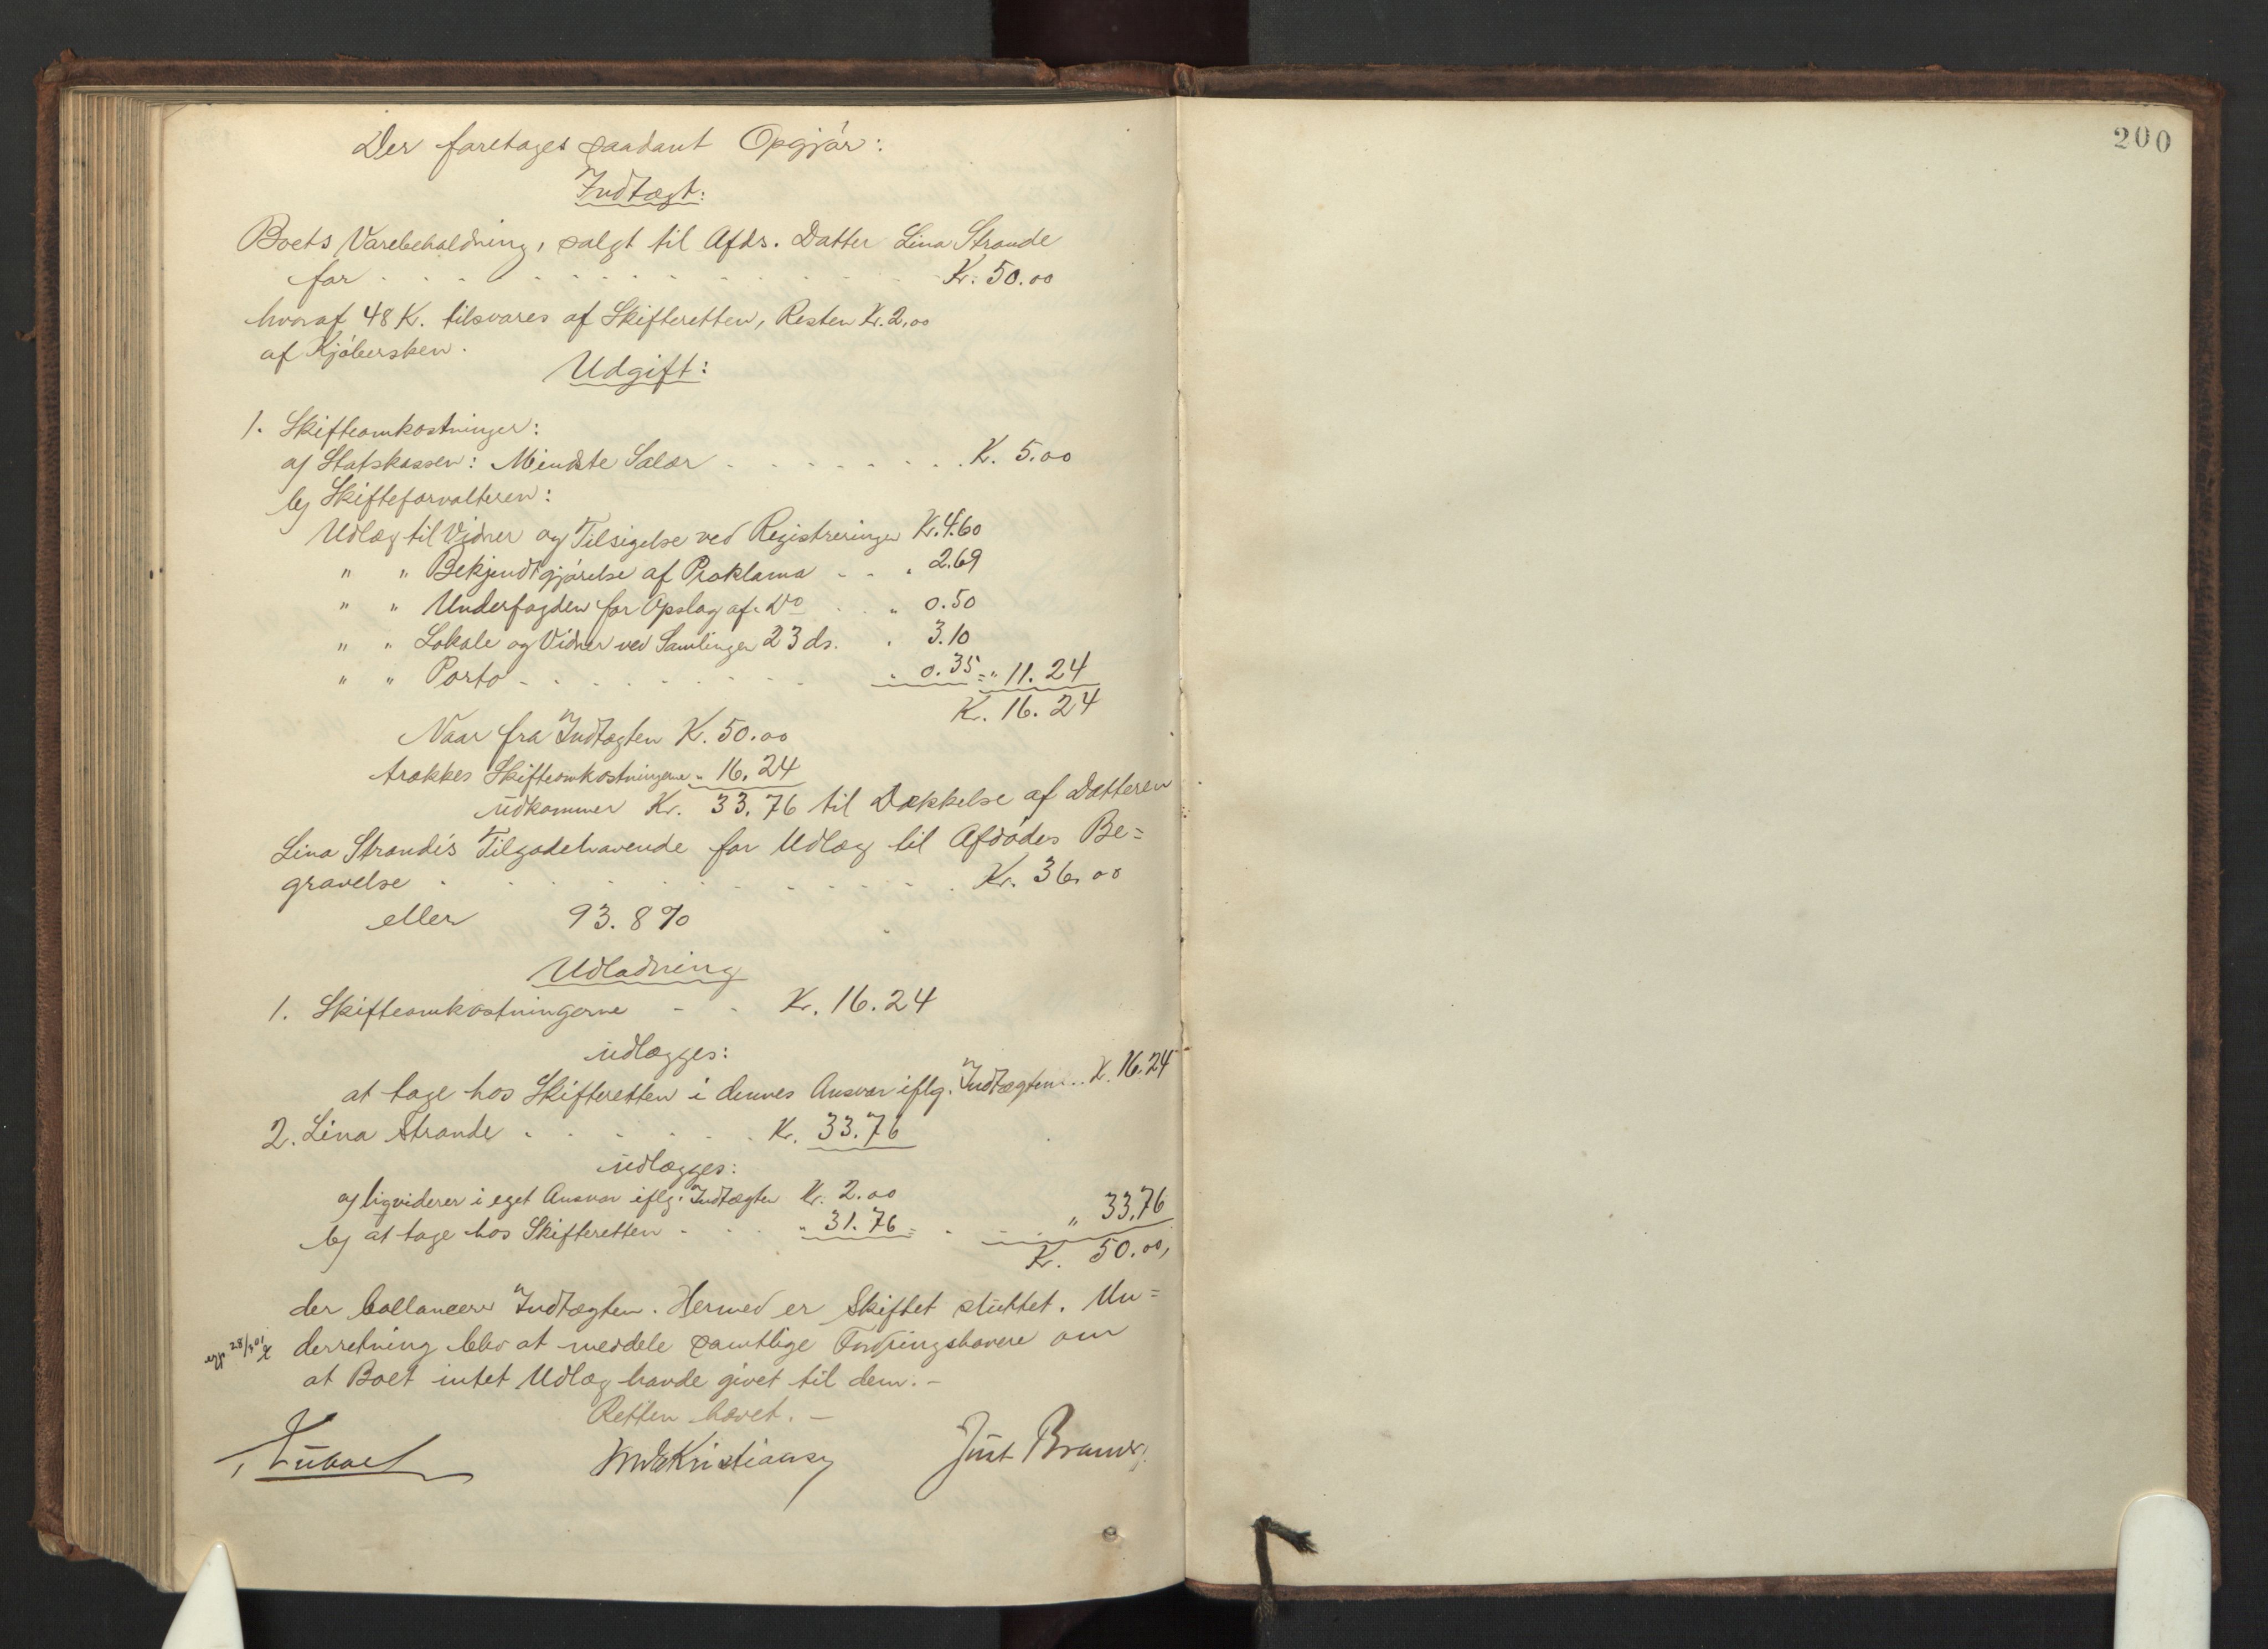 Der foretages saadant Opgjör:
Indtægt:
Boets Varebeholdning, solgt til Afds. Datter Lina Strande
for . . . . . . . . . . . . Kr. 50.00
hvoraf 48 K. tilsvares af Skifteretten, Resten Kr. 2,00
af Kjöbersken.
Udgift:
1. Skifteomkostninger:
a) Statskassen: Mindste Salær . . . . . . . . K. 5.00
b) Skifteforvalteren:
Udlæg til Vidner og Tilsigelse ved Registreringen Kr. 4.60
" " Bekjendtgjörelse af Proklama - - " 2.69
" " Underfogden for Opslag af Do . . " 0.50
" " Lokale og Vidner ved Samlingen 23 ds. " 3.10
" " Porto - . . . . . . . . " 0.35 = " 11.24
K. 16.24
Naar fra Indtægten K. 50.00
trækkes Skifteomkostningerne " 16.24
udkommer Kr. 33.76 til Dækkelse af Datteren
Lina Strande's Tilgodehavende for Udlæg til Afdödes Be=
gravelse . . . . . . . . . . . . Kr. 36.00
eller 93.8 %
Udlodning
1. Skifteomkostningerne - - Kr. 16.24
udlægges:
at tage hos Skifteretten i dennes Ansvar iflg. Indtægten . . K. 16.24
2. Lina Strande . . . . . . K. 33.76
udlægges:
a) liqviderer i eget Ansvar iflg. Indtægten Kr. 2.00
b) at tage hos Skifteretten - . . . " 31.76 = . . . " 33,76
K. 50.00,
der ballancerer Indtægten. Hermed er Skiftet sluttet. Un=
derretning blev at meddele samtlige Fordringshavere om
at Boet intet Udlæg havde givet til dem. -
Retten hævet. -
Kristiansen Just
200